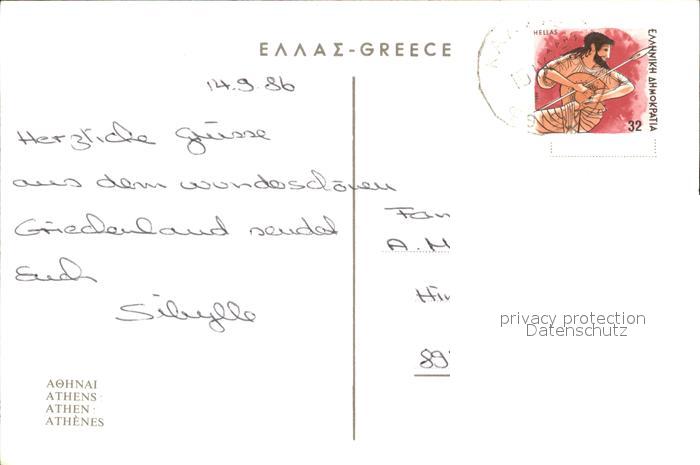 ΕΛΛΑΣ-GREECE
HELLAS
ΕΛΛΗΝΙΚΗ ΔΗΜΟΚΡΑΤΙΑ
32
14.9.86
Herzliche Grüsse
aus dem wundeschönen
Griechenland sendet
Euch
Sibylle
Fam
A. M
Hin
89
privacy protection
Datenschutz
ΑΘΗΝΑΙ
ATHENS
ATHEN
ATHÈNES